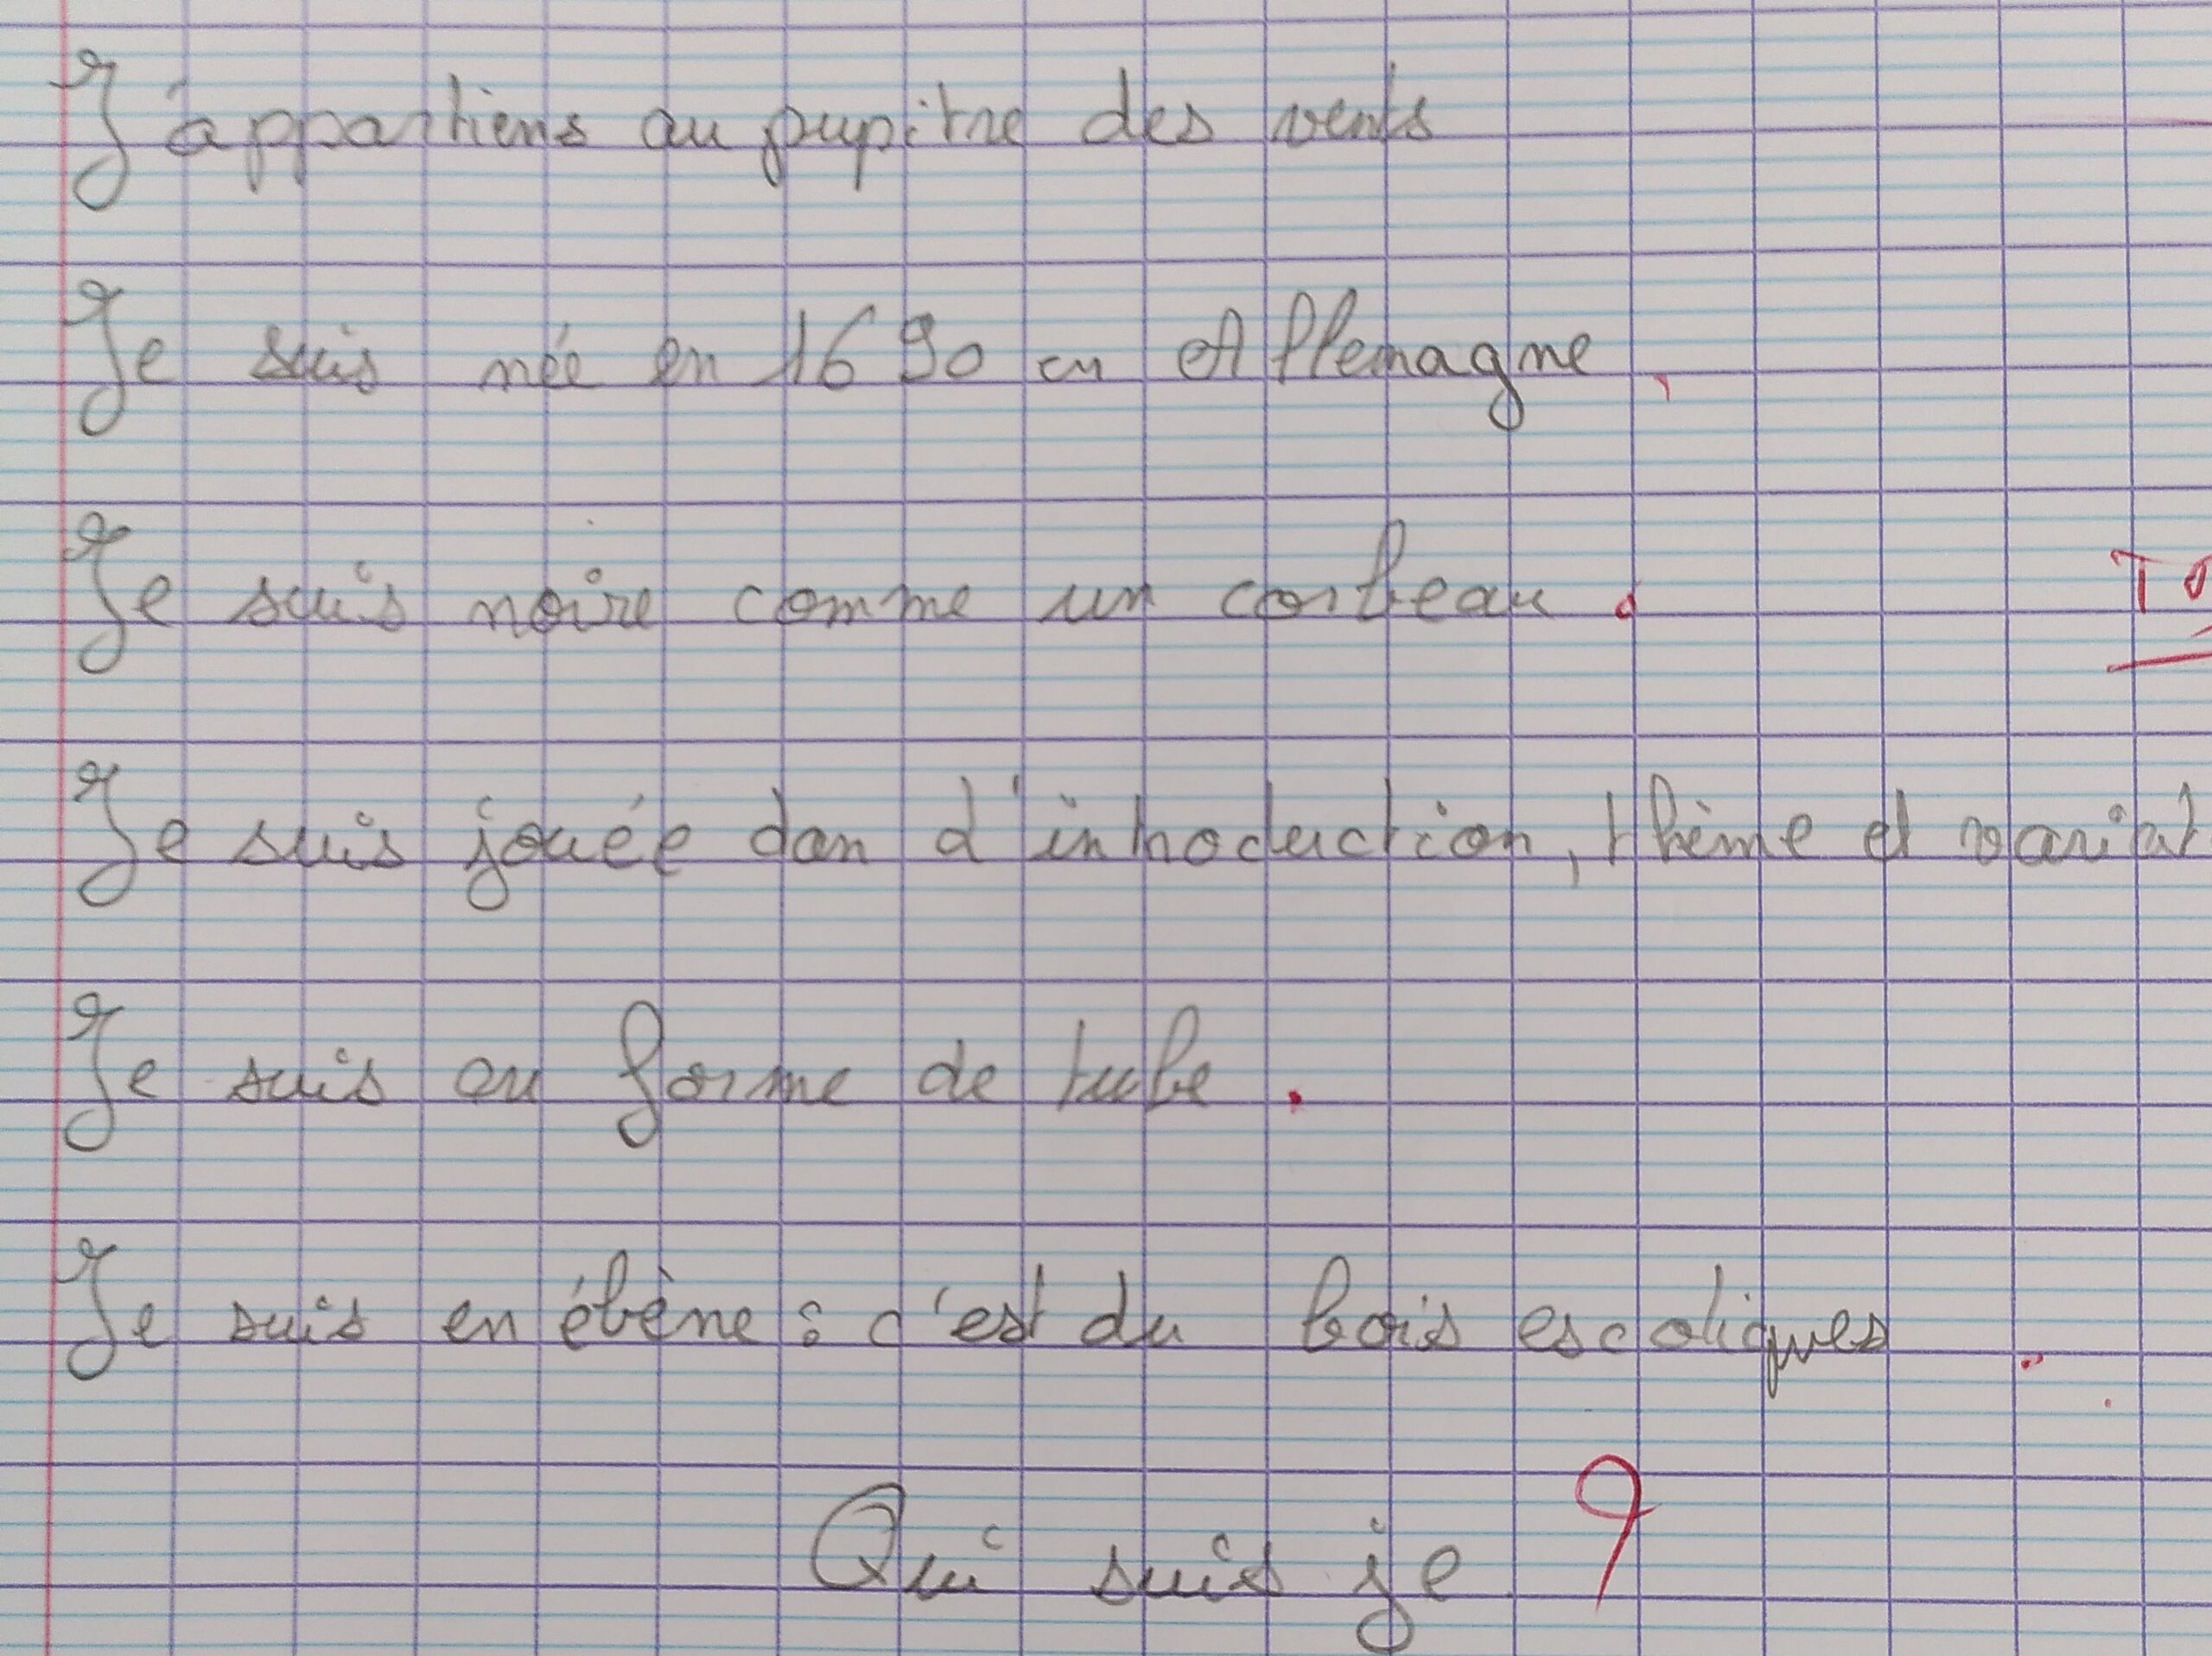 J'appartiens au pupitre des vents
Je suis née en 1690 en Allemagne.
Je suis noire comme un corbeau.
TO
Je suis jouée dan d'introduction, thème et variat
Je suis en forme de tube.
Je suis en ébène : c'est du bois escoliques.
Qui suis je ?